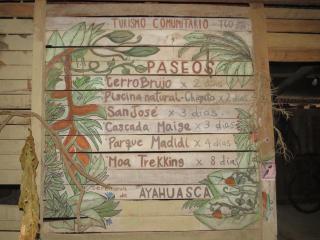 TURISMO COMUNITARIO TCO
PASEOS
Cerro Brujo x 2 dias
Piscina natural-Chapita x 2 dias
San José x 3 dias
Cascada Maige x 3 dias
Parque Madidi x 4 dias
Moa Trekking x 8 dias
ceremonia de AYAHUASCA